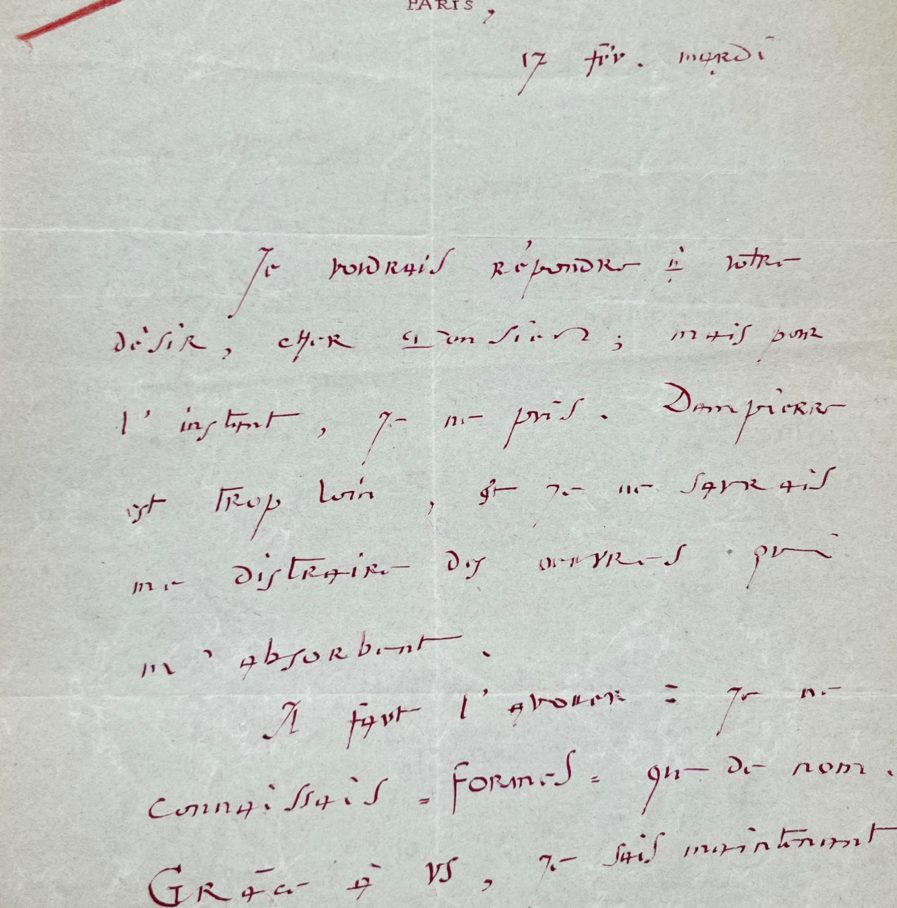 PARIS,
17 fév. mardi
Je voudrais répondre à votre
désir, cher Monsieur ; mais pour
l'instant, je ne puis. Dampierre
est trop loin, et je ne saurais
me distraire des œuvres qui
m'absorbent.
Il faut l'avouer = je ne
connaissais = Formes = que de nom.
Grâce à vs, je sais maintenant